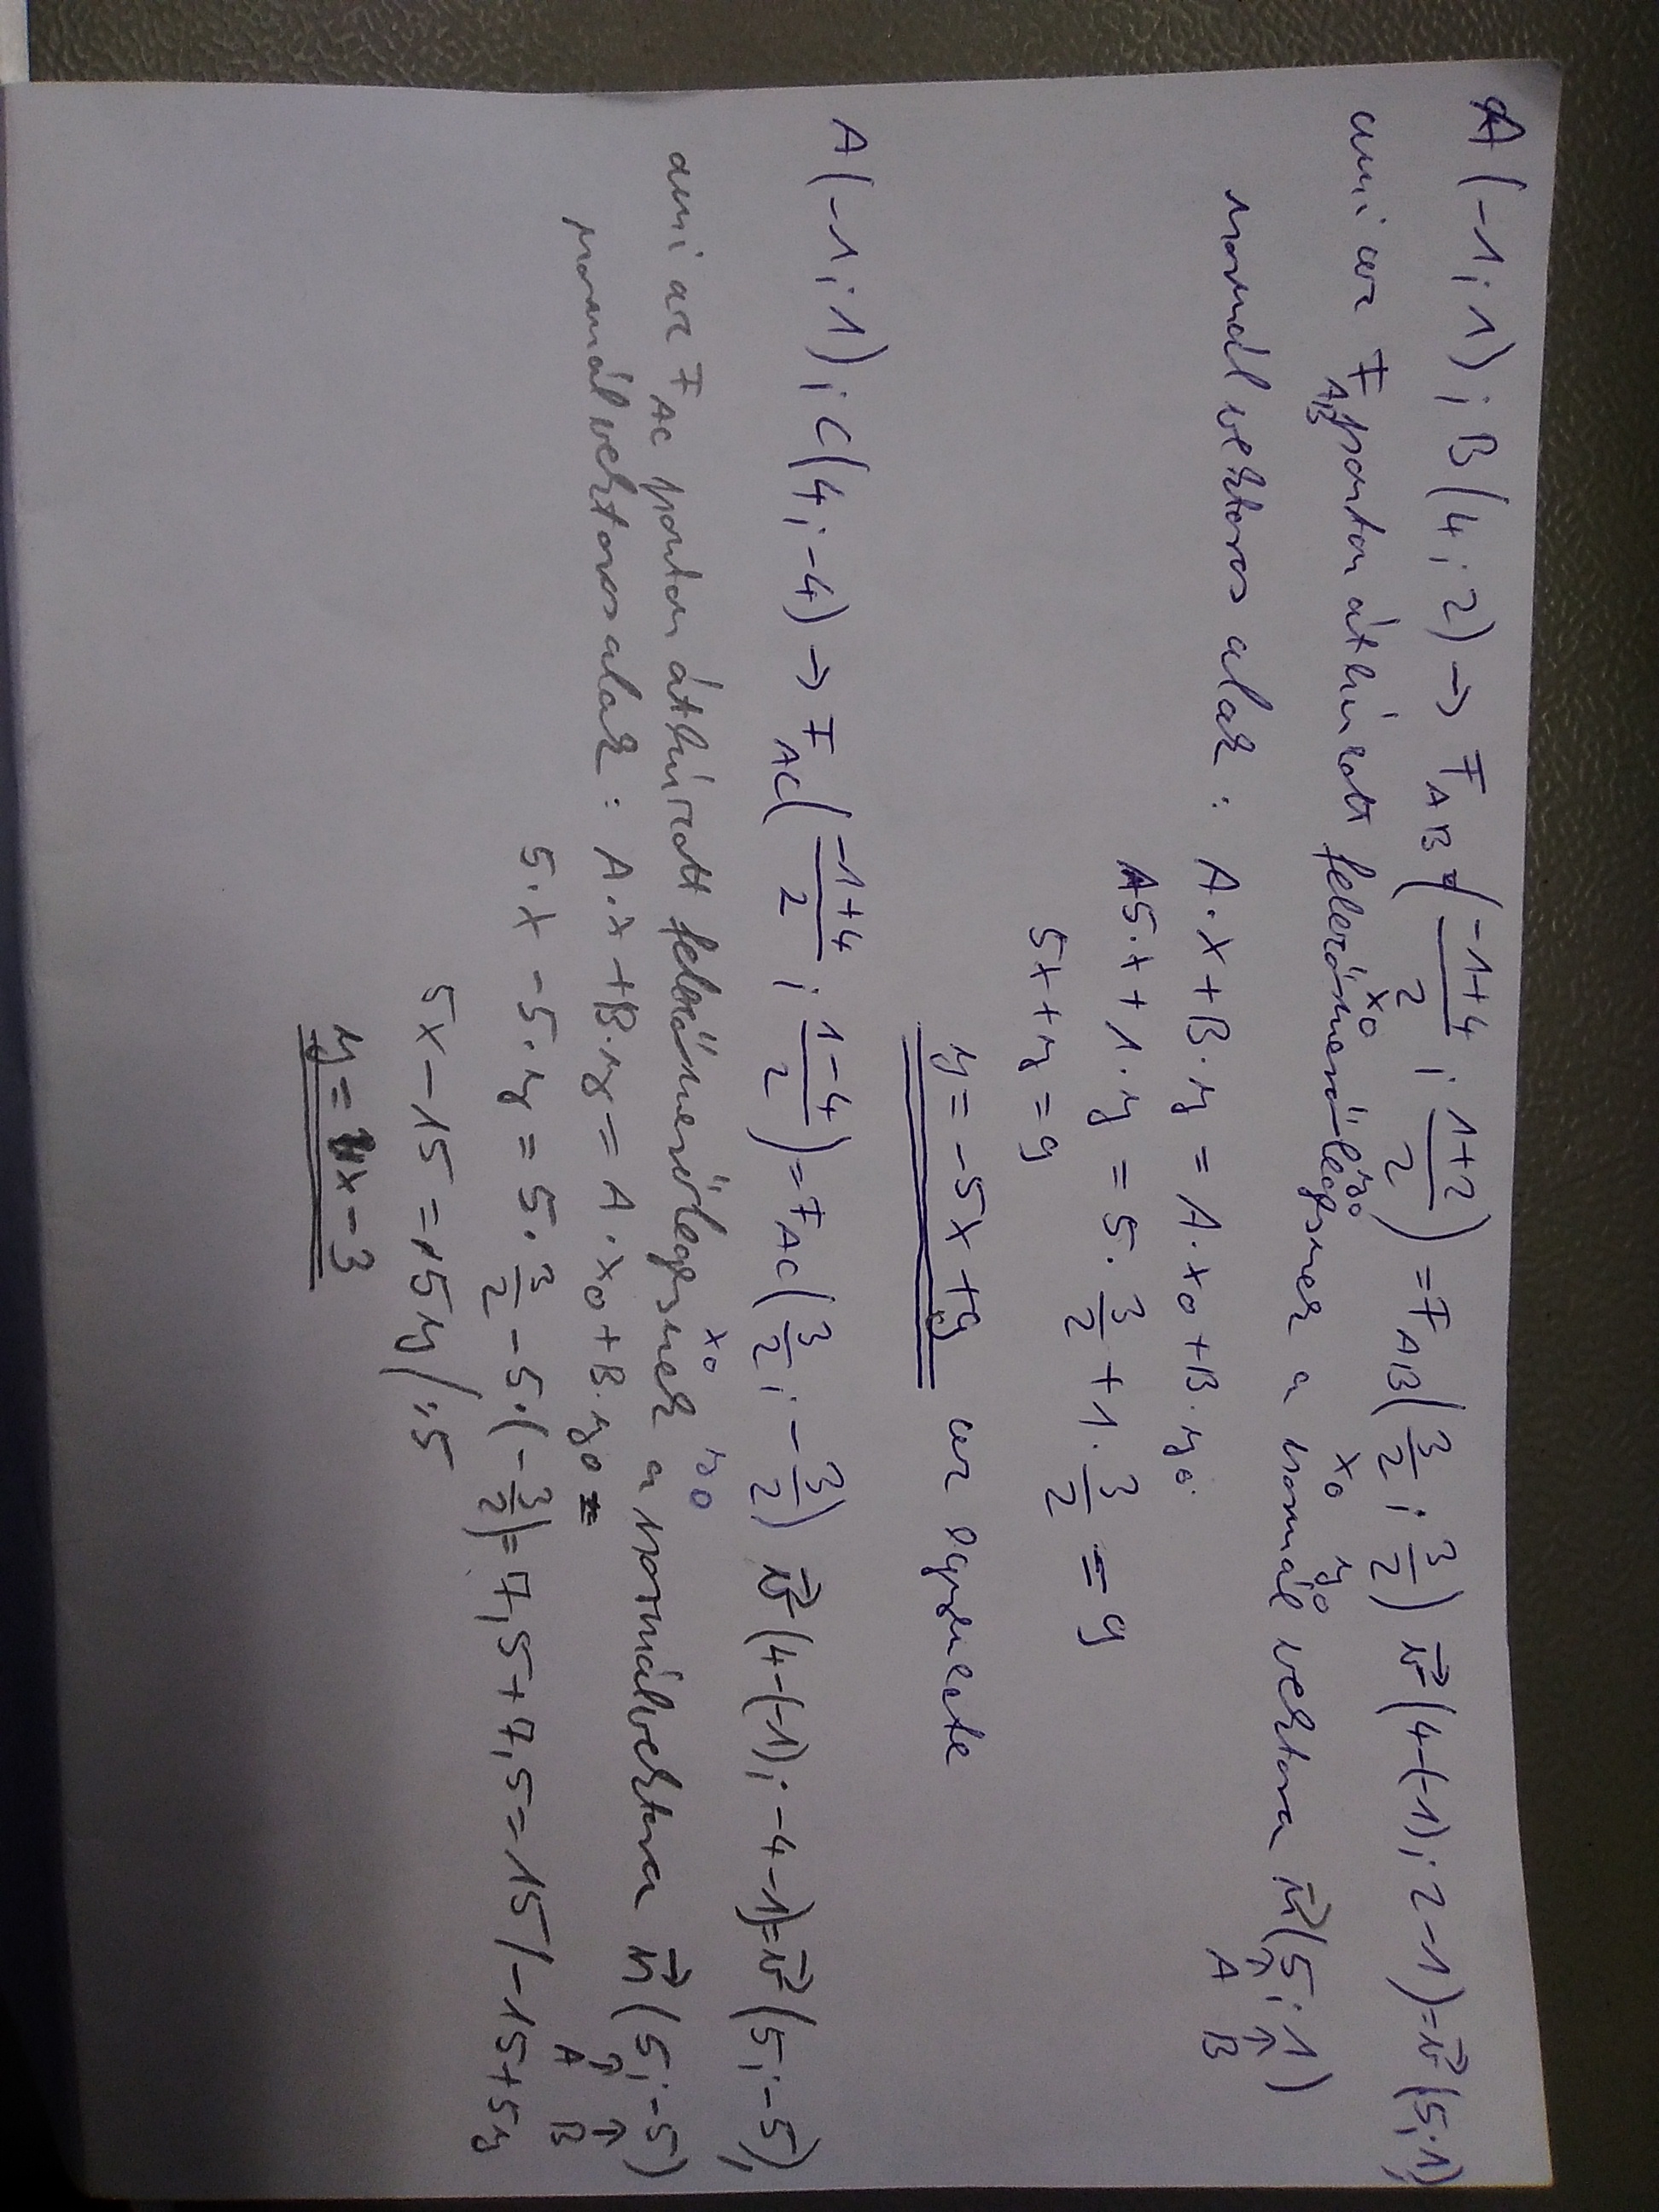 A(-1;1);B(4;2)→F_AB(\frac{-1+4}{2};\frac{1+2}{2})=F_AB(\frac{3}{2};\frac{3}{2}) \vec{v}(4-(-1);2-1)=\vec{v}(5;1)
x₀ y₀ x₀ y₀
ami az F_AB ponton áthúzott felezőmerőlegesnek a normál vektora \vec{n}(5;1)
↑ ↑
A B
normál vektoros alak: A·x+B·y=A·x₀+B·y₀
5·x+1·y=5·\frac{3}{2}+1·\frac{3}{2}=9
5x+y=9
y=-5x+9 az egyenlete
A(-1;1);C(4;-4)→F_AC(\frac{-1+4}{2};\frac{1-4}{2})=F_AC(\frac{3}{2};-\frac{3}{2}) \vec{v}(4-(-1);-4-1)=\vec{v}(5;-5)
x₀ y₀
ami az F_AC ponton áthúzott felezőmerőlegesnek a normálvektora \vec{n}(5;-5)
↑ ↑
A B
normálvektoros alak: A·x+B·y=A·x₀+B·y₀=
5·x-5·y=5·\frac{3}{2}-5·(-\frac{3}{2})=7,5+7,5=15/-15+5y
5x-15=5y/:5
y=x-3